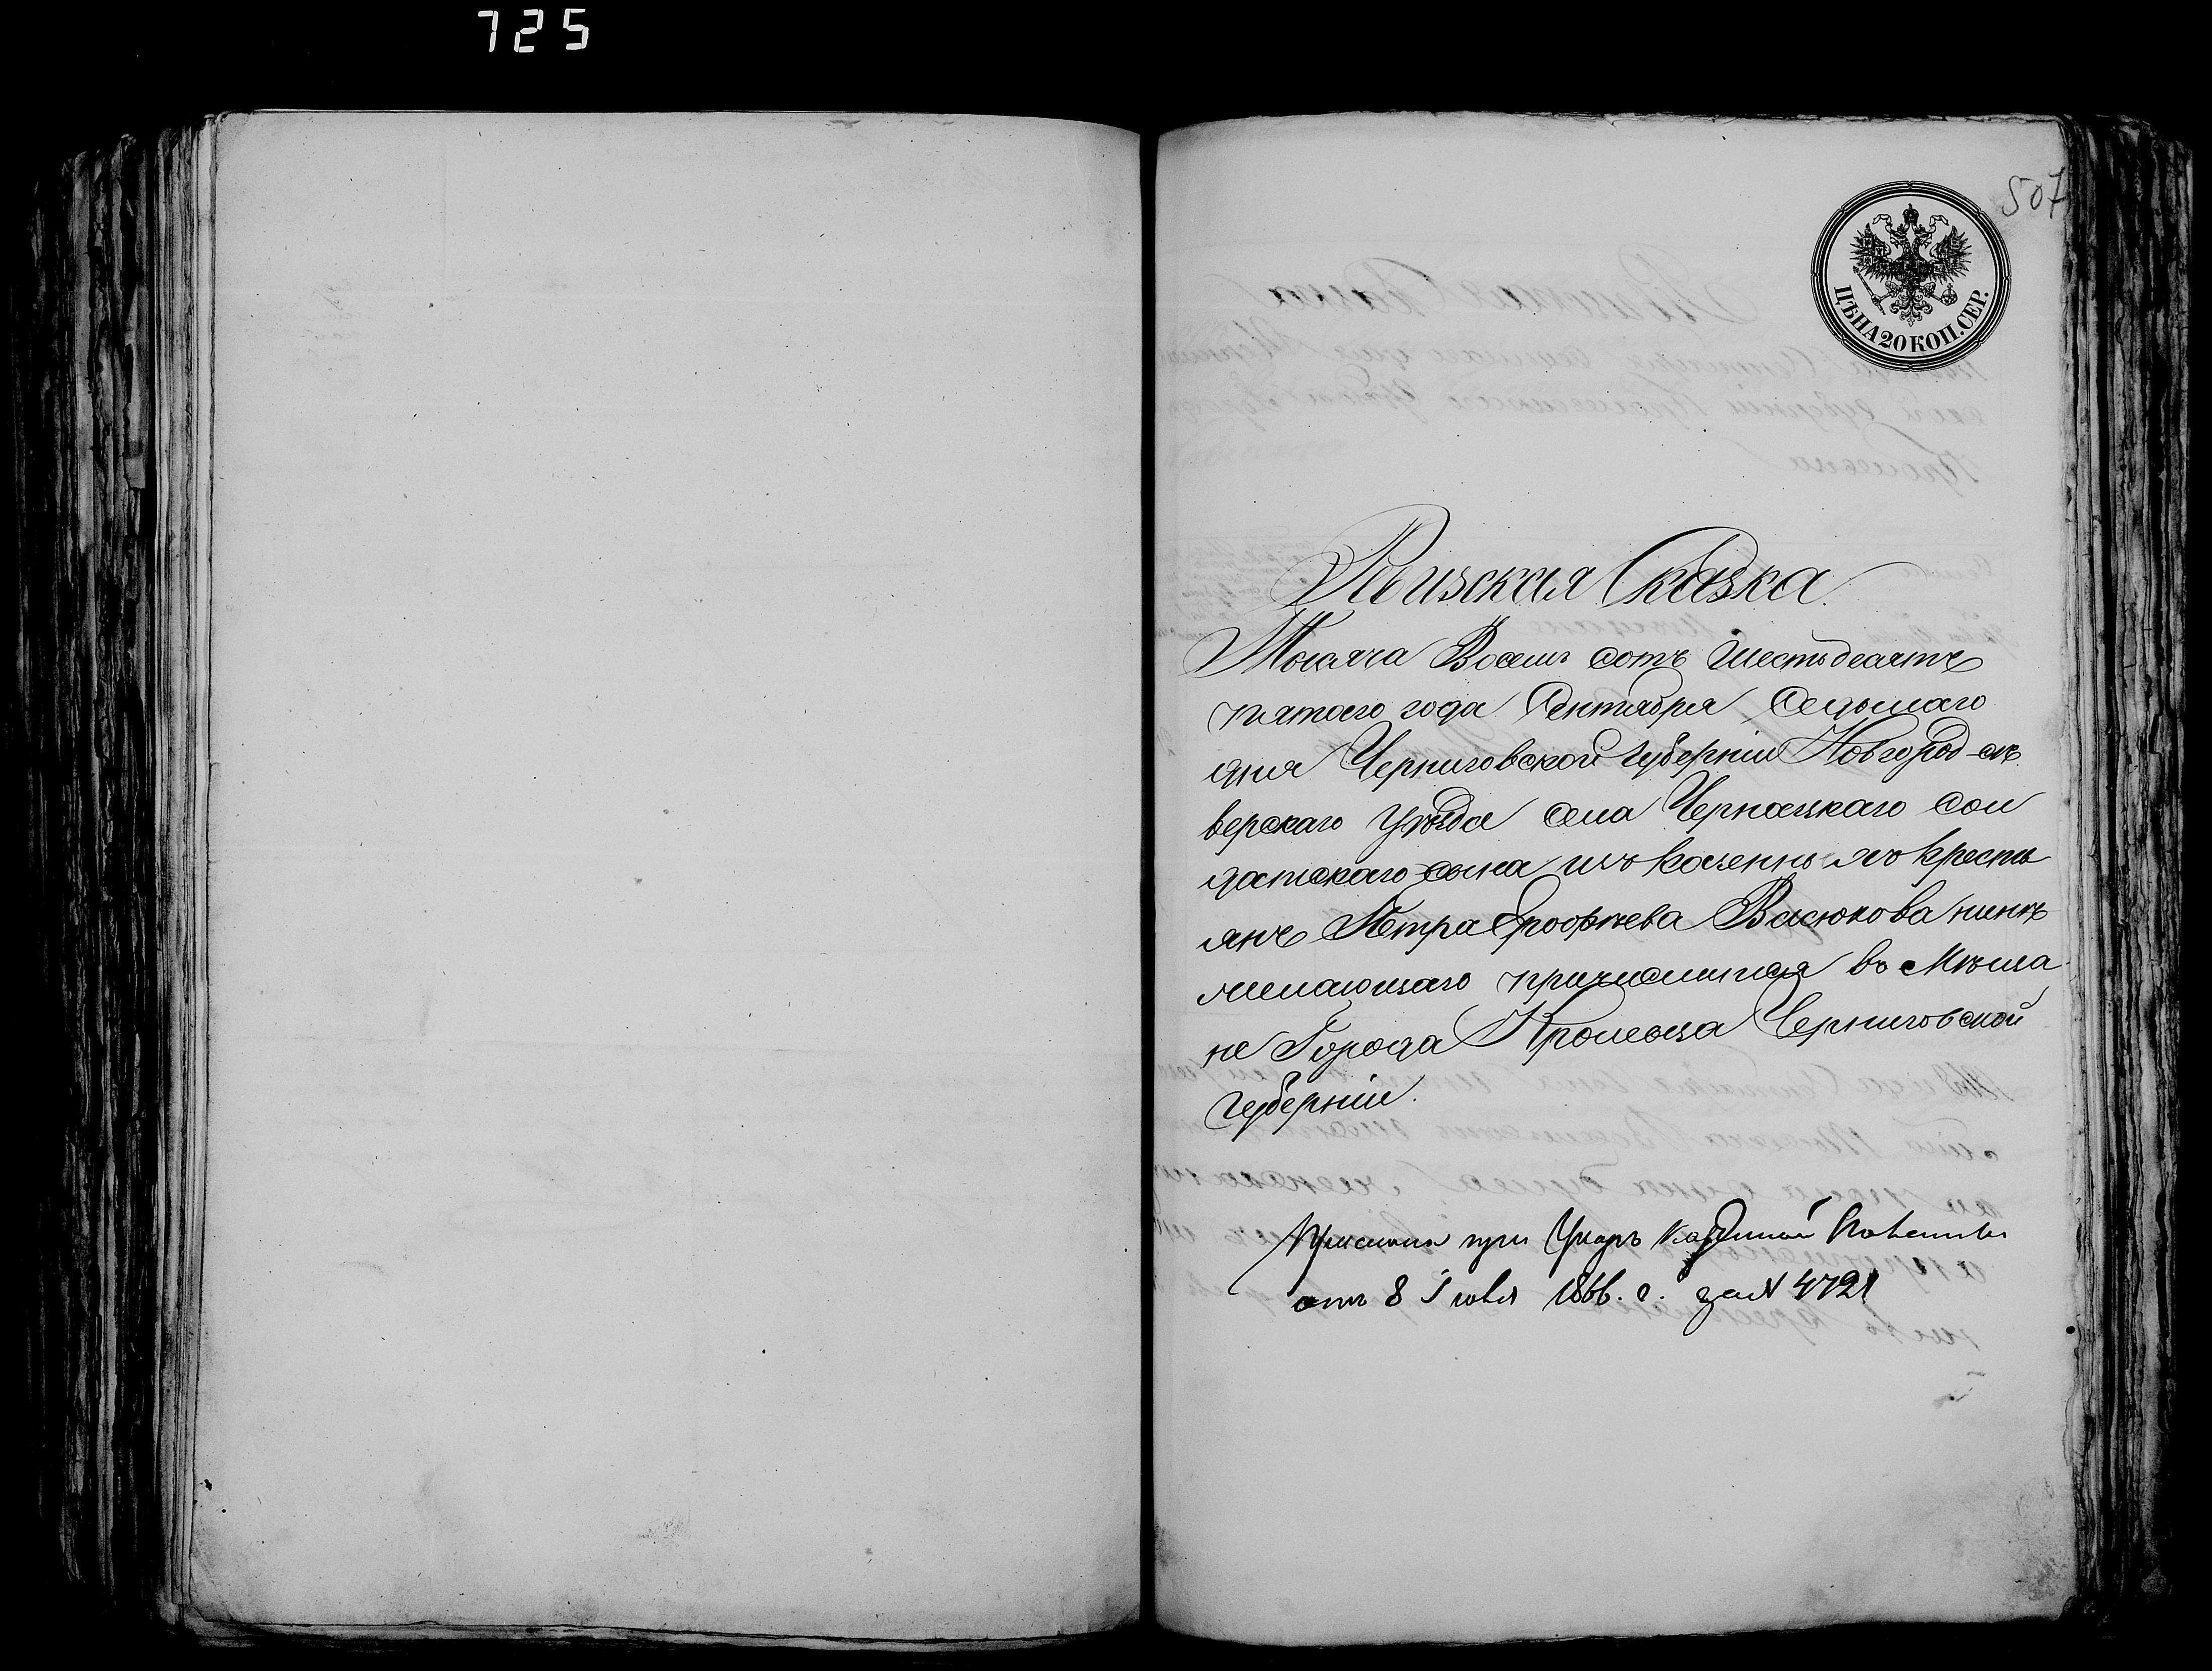 725
507
ЦѢНА 20 КОП. СЕР.
Ревизская Сказка.
Тысяча Восемь сотъ шестьдесятъ
пятаго года Сентября Седьмаго
дня Черниговской губерніи Новгород-сѣ
верскаго Уѣзда села Чернацкаго сол
датскаго сына изъ казенныхъ кресть
янъ Петра Ерофѣева Васюкова нинѣ
желающаго причислится въ Мѣща
не Города Кролевца Черниговской
губерніи.
при Указѣ Казенной Палаты
отъ 8 Іюля 1866. г. за N 4721